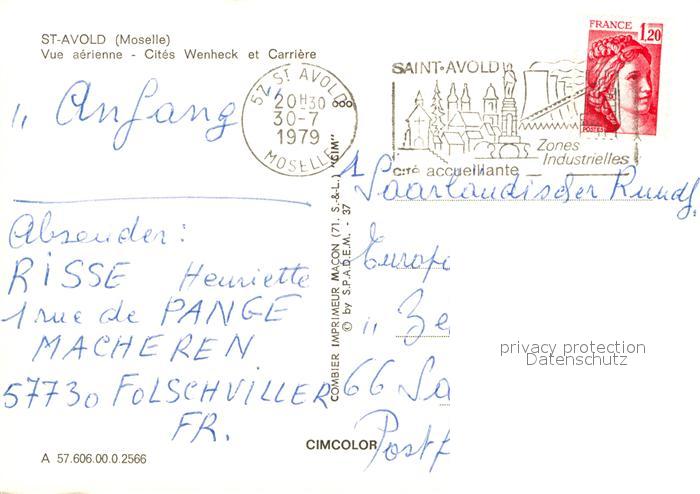 ST-AVOLD (Moselle)
Vue aérienne - Cités Wenheck et Carrière
" Anfang
Absender:
RISSE Henriette
1 rue de PANGE
MACHEREN
57730 FOLSCHVILLER
FR.
A 57.606.00.0.2566
COMBIER IMPRIMEUR MACON (71. S.-&-L.) "CIM"
© by S.P.A.D.E.M. - 37
CIMCOLOR
57 ST AVOLD
20H30
30-7
1979
MOSELLE
SAINT-AVOLD
Zones
Industrielles
cité accueillante
FRANCE
1,20
POSTES
Saarländischer Rundf.
Europa
" Ze
66 Sa
Postf
privacy protection
Datenschutz